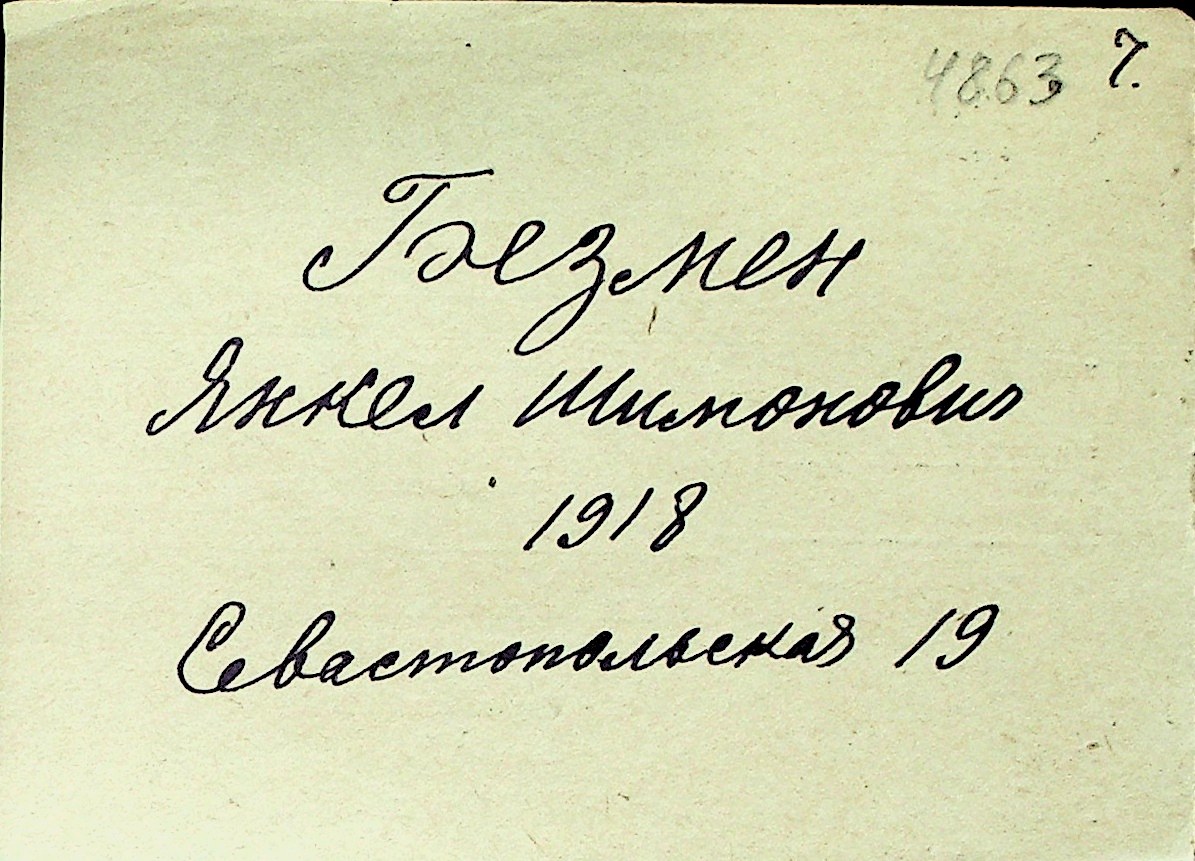 4863 7.
Безмен
Янкел Шимонович
1918
Севастопольская 19